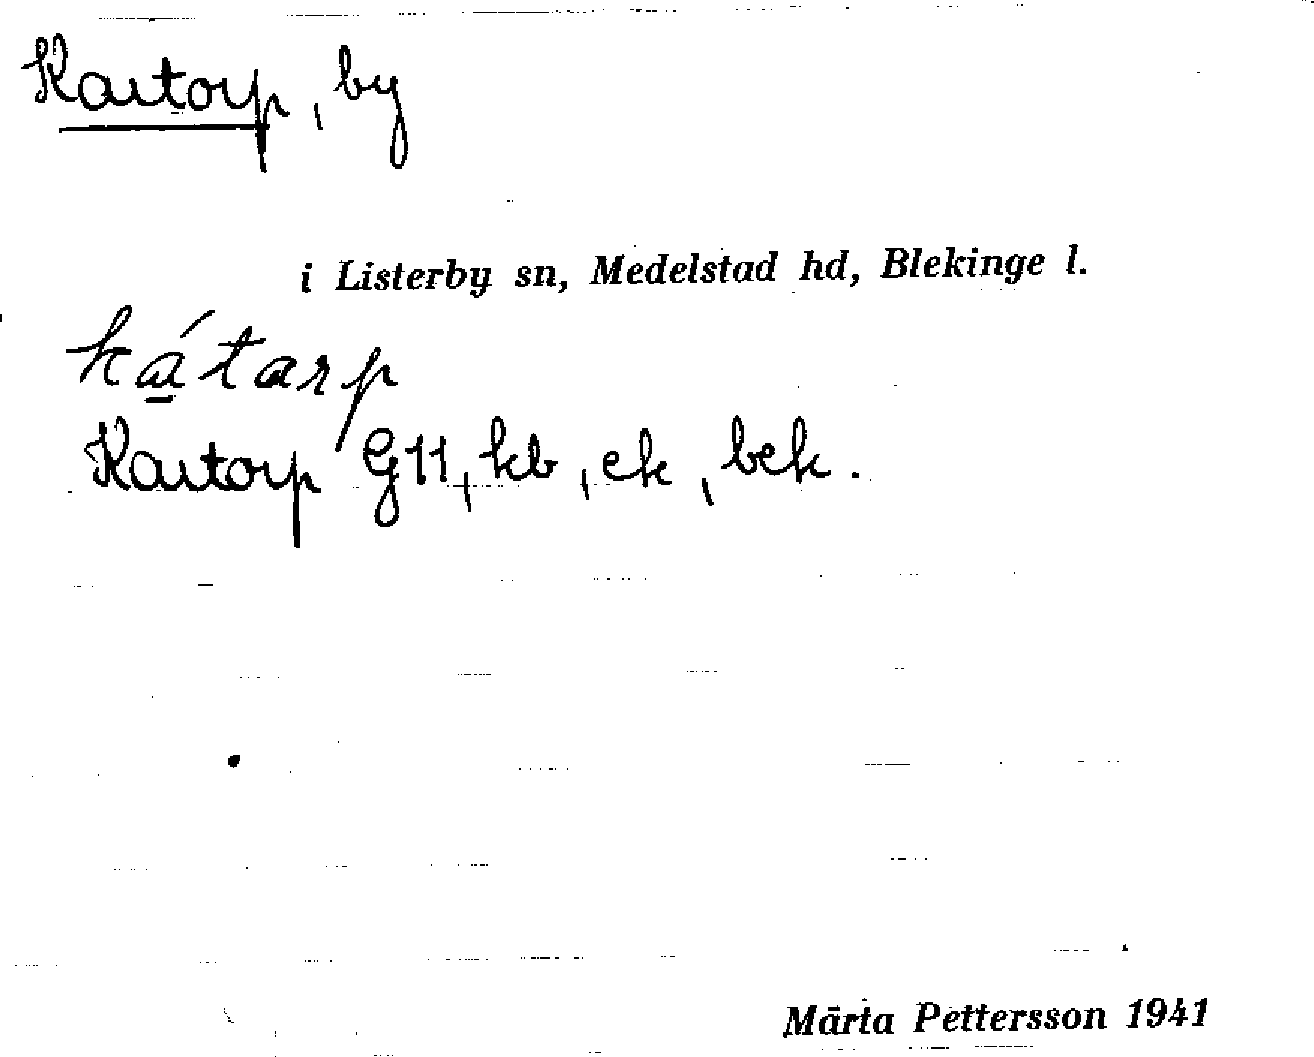 Kartorp, by
i Listerby sn, Medelstad hd, Blekinge l.
ká̱tarp
Kartorp G11, kb, ek, bek.
Märta Pettersson 1941